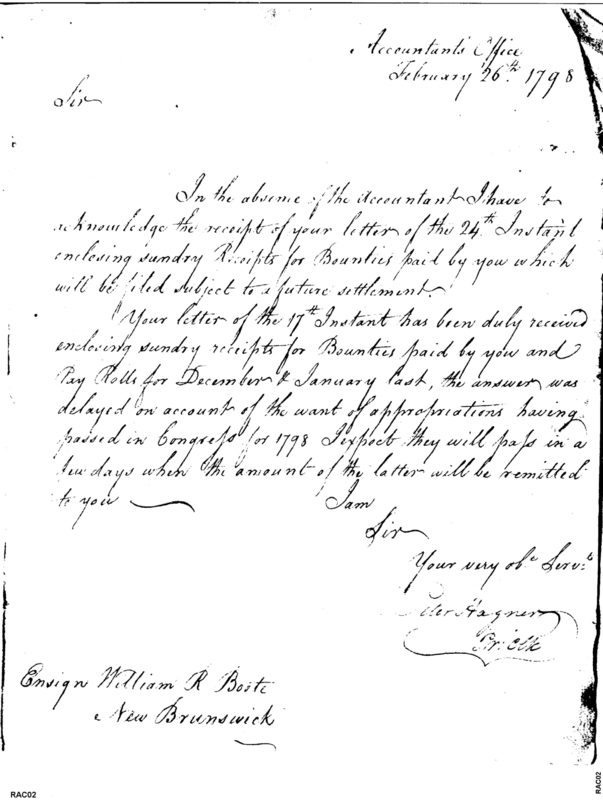 Accountants Office
February 26th. 1798
Sir
In the absence of the Accountant I have to
acknowledge the receipt of your letter of the 24th. Instant
enclosing sundry Receipts for Bounties paid by you which
will be filed subject to a future settlement.
Your letter of the 17th Instant has been duly received
enclosing sundry receipts for Bounties paid by you and
Pay Rolls for December & January last, the answer was
delayed on account of the want of appropriations having
passed in Congress for 1798 I expect they will pass in a
few days when the amount of the latter will be remitted
to you
I am
Sir
Your very obe. Servt.
Peter Hagner
Pr. Clk
Ensign William R Boote
New Brunswick
RAC02
RAC02